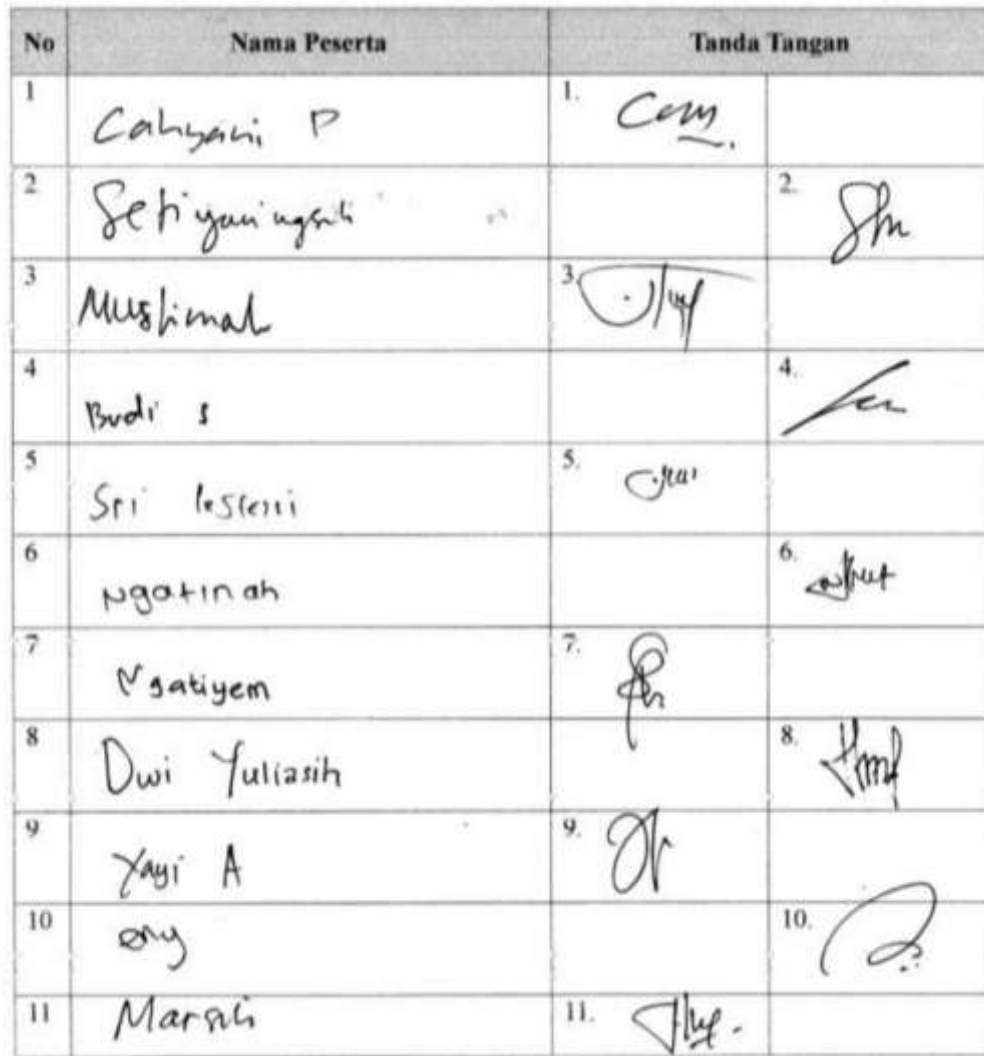 No Nama Peserta Tanda Tangan
1 Cahyani P 1.
2 Setiyaningsih 2.
3 Muslimah 3.
4 Budi S 4.
5 Sri lestari 5.
6 Ngatinah 6.
7 Ngatiyem 7.
8 Dwi Yuliasih 8.
9 Yayi A 9.
10 eny 10.
11 Marsih 11.